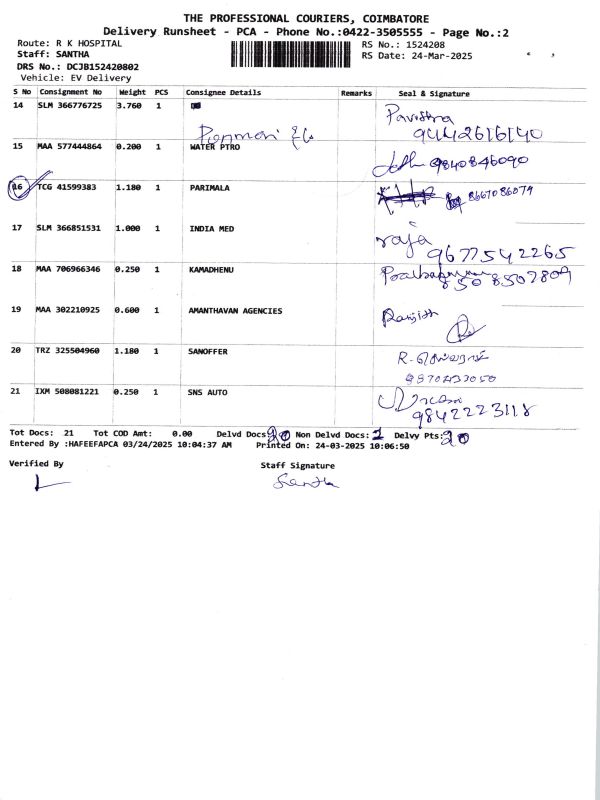 THE PROFESSIONAL COURIERS, COIMBATORE
Delivery Runsheet - PCA - Phone No.:0422-3505555 - Page No.:2
Route: R K HOSPITAL
RS No.: 1524208
Staff: SANTHA
RS Date: 24-Mar-2025
DRS No.: DCJB152420802
Vehicle: EV Delivery
S No Consignment No Weight PCS Consignee Details Remarks Seal & Signature
14 SLM 366776725 3.760 1 Pavithra
9442616140
15 MAA 577444864 0.200 1 WATER PTRO
9840846090
16 TCG 41599383 1.180 1 PARIMALA 8667086079
17 SLM 366851531 1.000 1 INDIA MED raja
9677542265
18 MAA 706966346 0.250 1 KAMADHENU
8508507809
19 MAA 302210925 0.600 1 AMANTHAVAN AGENCIES Ranjith
20 TRZ 325504960 1.180 1 SANOFFER
21 IXM 508081221 0.250 1 SNS AUTO
9842223118
Tot Docs: 21 Tot COD Amt: 0.00 Delvd Docs: 20 Non Delvd Docs: 1 Delvy Pts: 20
Entered By :HAFEEFAPCA 03/24/2025 10:04:37 AM Printed On: 24-03-2025 10:06:50
Verified By Staff Signature
Santha